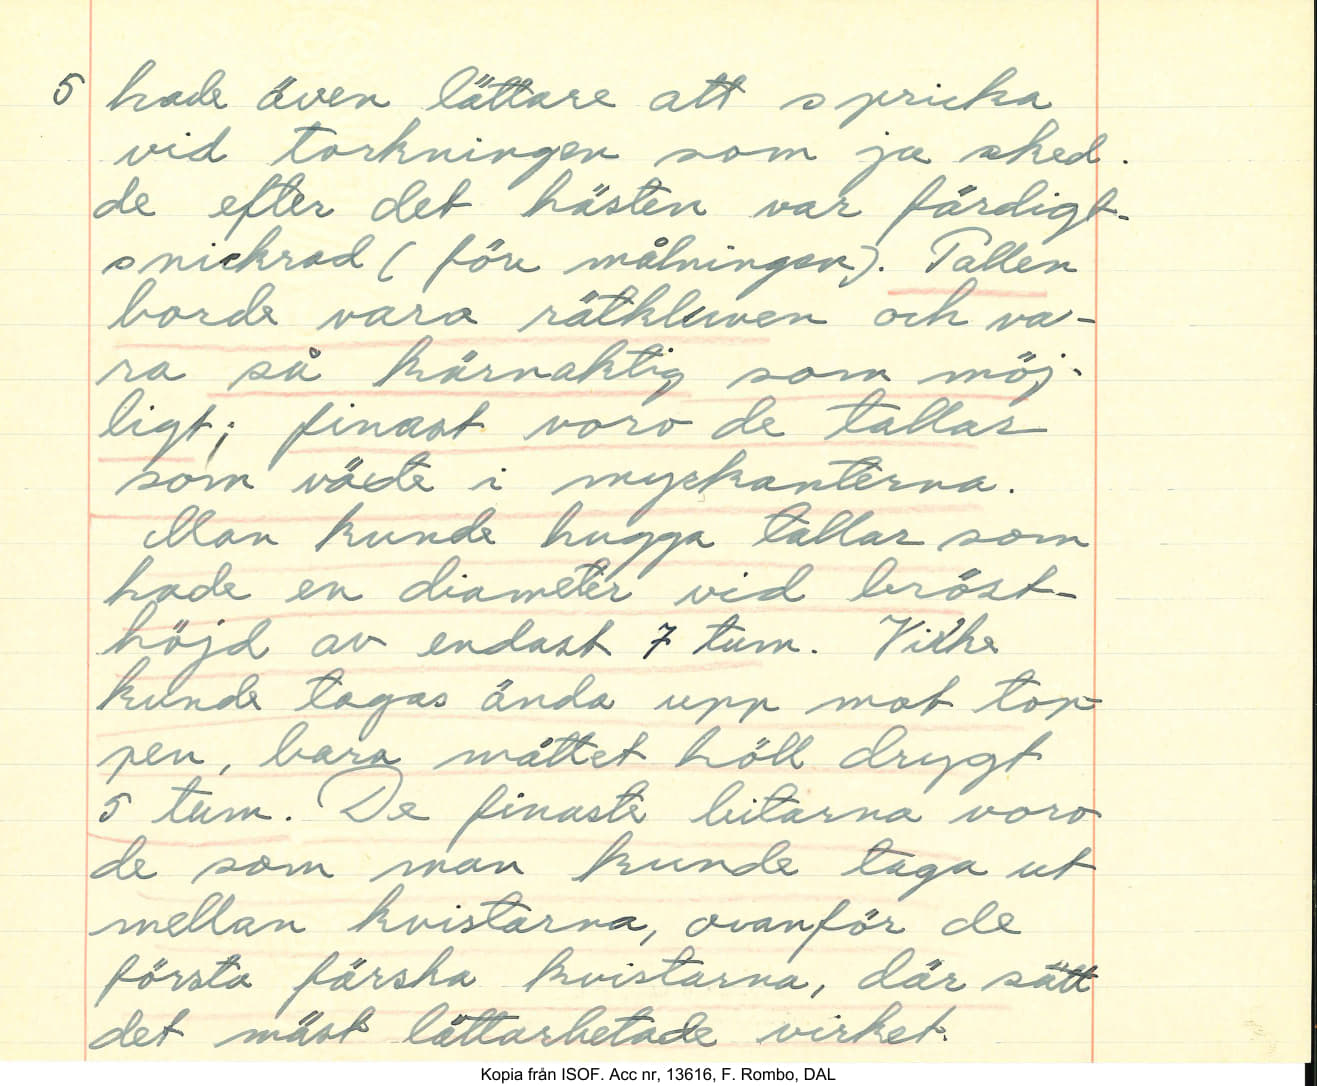 5 hade även lättare att spricka
vid torkningen som ju sked-
de efter det hästen var färdigt-
snickrad (före målningen). Tallen
borde vara rätkluven och va-
ra så kärnaktig som möj-
ligt; finast voro de tallar
som växte i myrkanterna.
Man kunde hugga tallar som
hade en diameter vid bröst-
höjd av endast 7 tum. Virke
kunde tagas ända upp mot top-
pen, bara måttet höll drygt
5 tum. De finaste bitarna voro
de som man kunde taga ut
mellan kvistarna, ovanför de
första färska kvistarna, där satt
det mäst lättarbetade virket.
Kopia från ISOF. Acc nr, 13616, F. Rombo, DAL